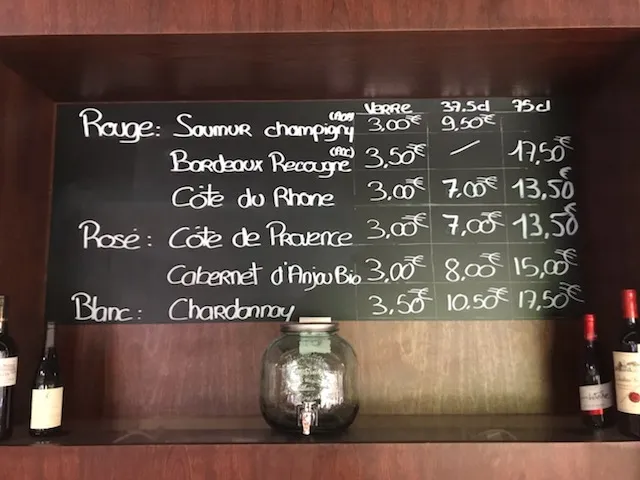 Verre 37.5cl 75cl
Rouge: Saumur champigny (AOP) 3,00€ 9,50€
Bordeaux Recougne (AOC) 3,50€ / 17,50€
Côte du Rhone 3,00€ 7.00€ 13,50€
Rosé: Côte de Provence 3,00€ 7,00€ 13,50€
Cabernet d'Anjou Bio 3,00€ 8,00€ 15,00€
Blanc: Chardonnay 3,50€ 10.50€ 17,50€